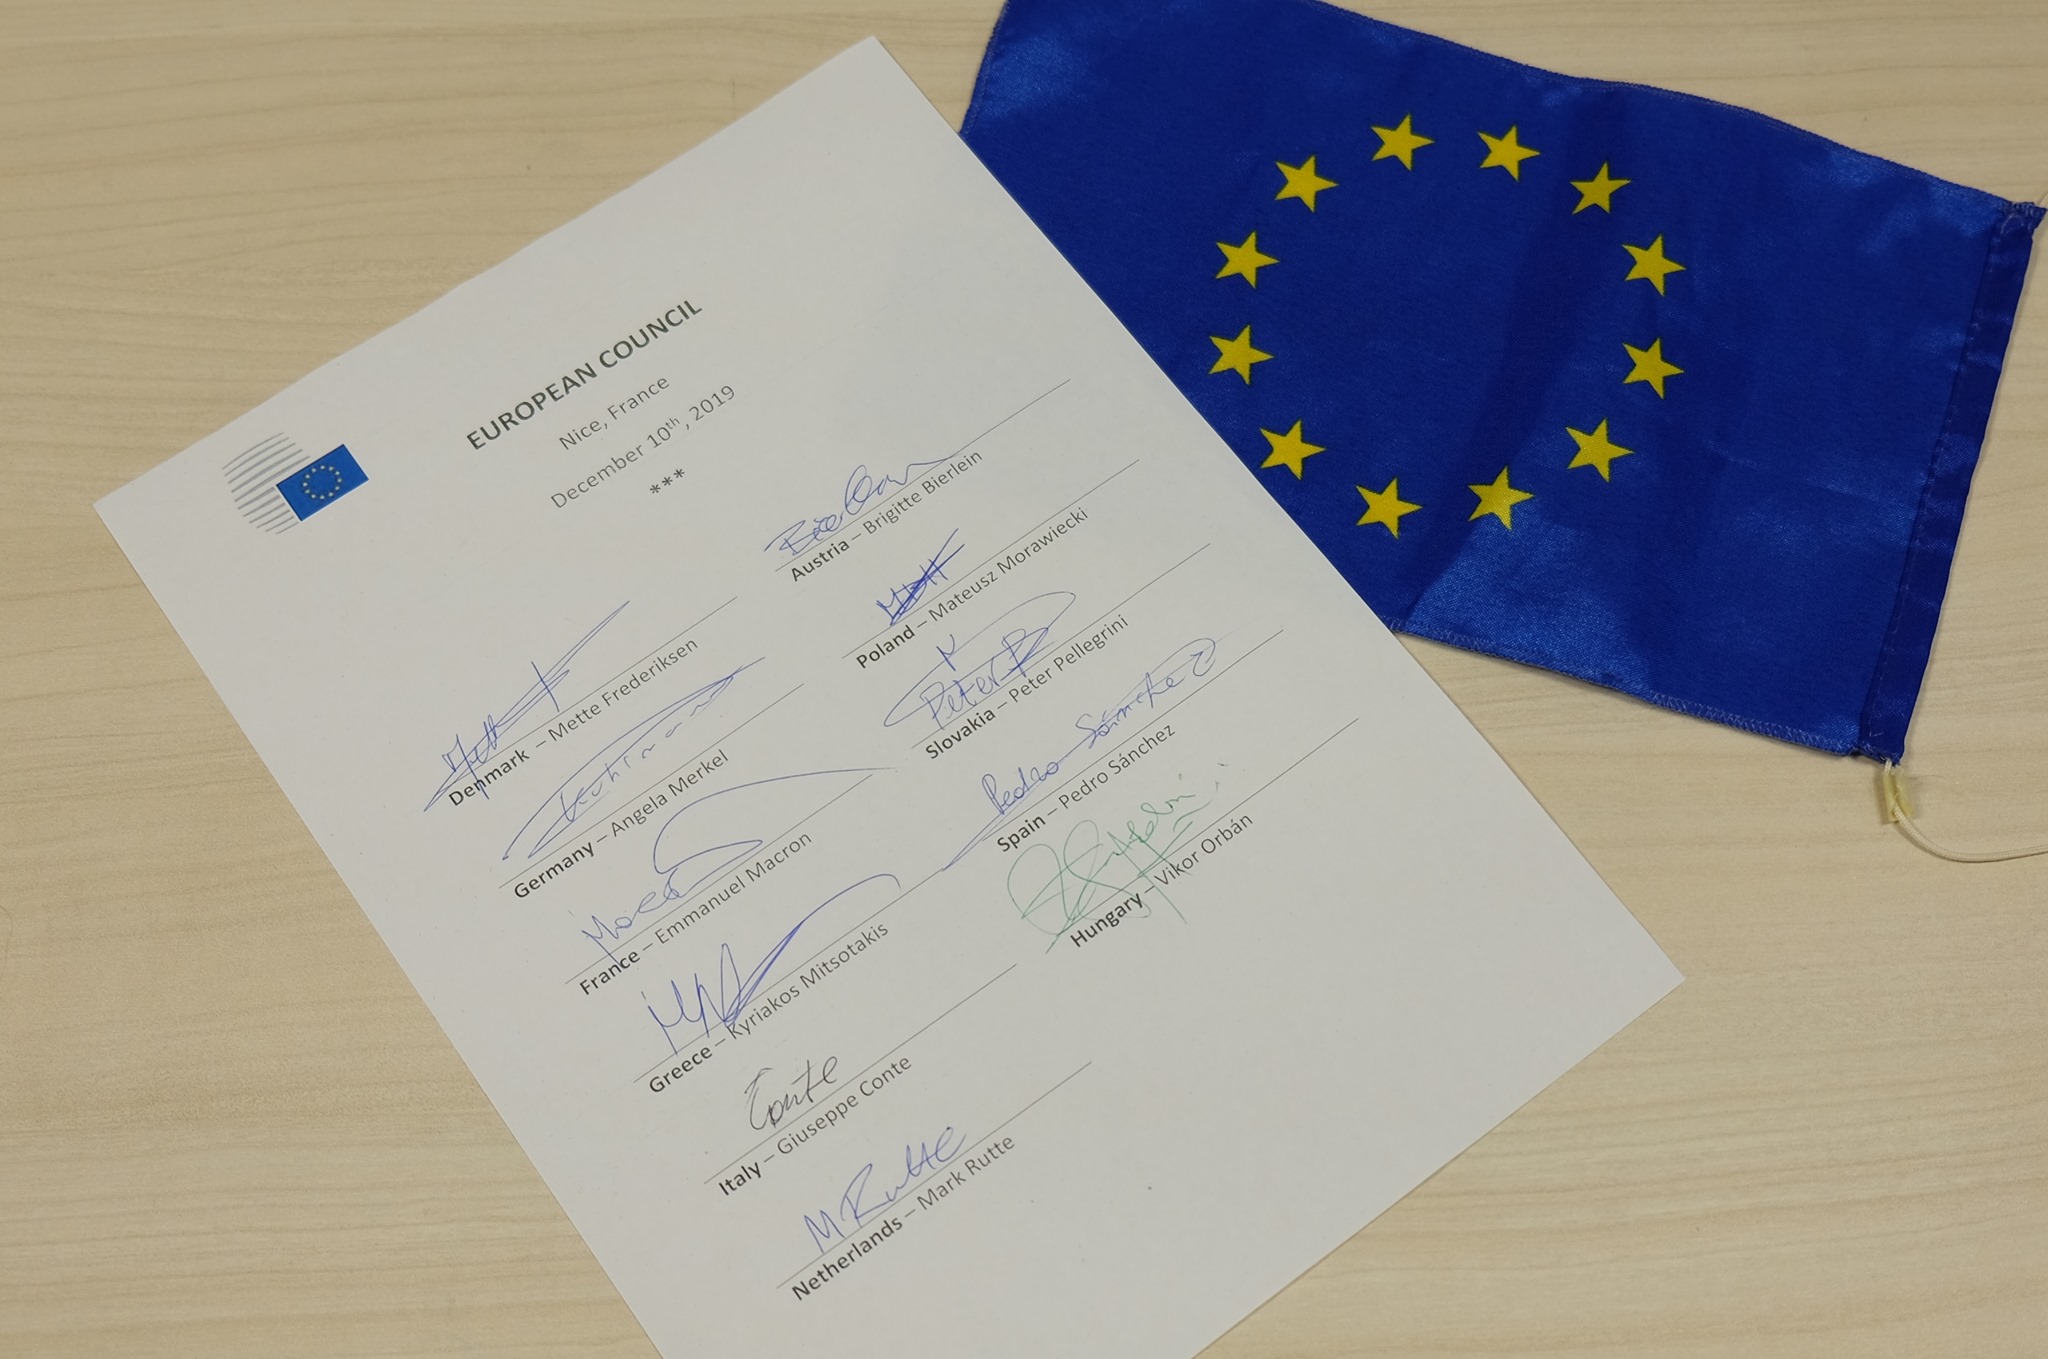 EUROPEAN COUNCIL
Nice, France
December 10th, 2019
***
Denmark – Mette Frederiksen
Germany – Angela Merkel
Macron
France – Emmanuel Macron
Greece – Kyriakos Mitsotakis
Conte
Italy – Giuseppe Conte
M Rutte
Netherlands – Mark Rutte
Austria – Brigitte Bierlein
Poland – Mateusz Morawiecki
Peter
Slovakia – Peter Pellegrini
Pedro Sánchez
Spain – Pedro Sánchez
Hungary – Vikor Orbán